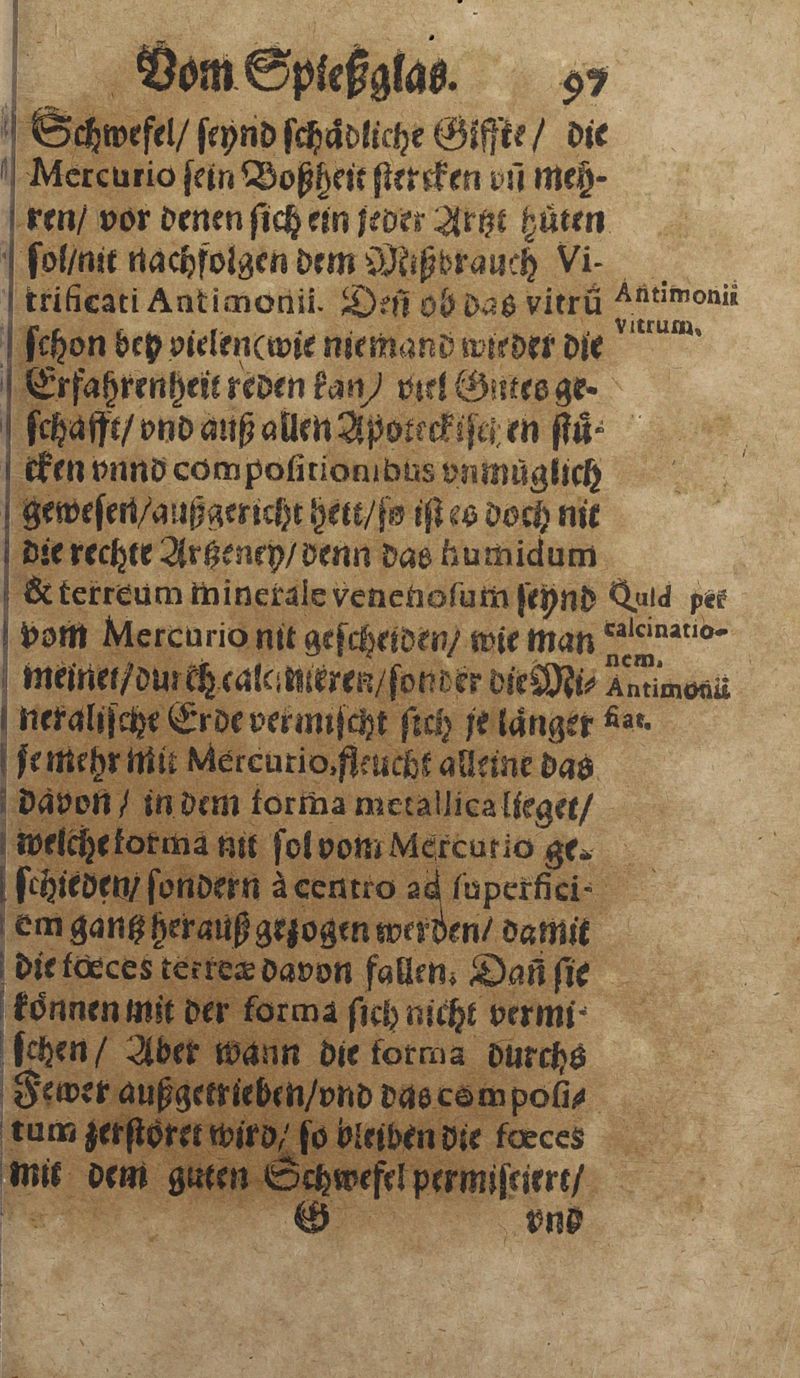 Vom Spießglas. 97
Schwefel/ ſeynd ſchädliche Giffte/ die
Mercurio ſein Boßheit ſtercken vñ meh-
ren/ vor denen ſich ein jeder Artzt hüten
ſol/nit nachfolgen dem Mißbrauch Vi-
trificati Antimonii. Deñ ob das vitrũ
Antimonii
vitrum.
ſchon bey vielen(wie niemand wieder die
Erfahrenheit reden kan) viel Gutes ge-
ſchafft/ vnd auß allen Apoteckiſchen ſtü-
cken vnnd compoſitionibus vnmüglich
geweſen/außgericht hett/ſo iſt es doch nit
die rechte Artzeney/denn das humidum
& terreum minerale venenoſum ſeynd
Quid per
calcinatio-
nem.
Antimonii
fiat.
vom Mercurio nit geſcheiden/ wie man
meinet/durch calcinieren/ſonder die Mi-
neraliſche Erde vermiſcht ſich je länger
je mehr mit Mercurio,fleucht alleine das
davon/ in dem forma metallica lieget/
welche forma nit ſol vom Mercurio ge-
ſchieden/ ſondern à centro ad ſuperfici-
em gantz herauß gezogen werden/ damit
die fœces terreæ davon fallen. Dañ ſie
können mit der forma ſich nicht vermi-
ſchen/ Aber wann die forma durchs
Fewer außgetrieben/vnd das compoſi-
tum zerſtöret wird/ ſo bleiben die fœces
mit dem guten Schwefel permiſciert/
G vnd